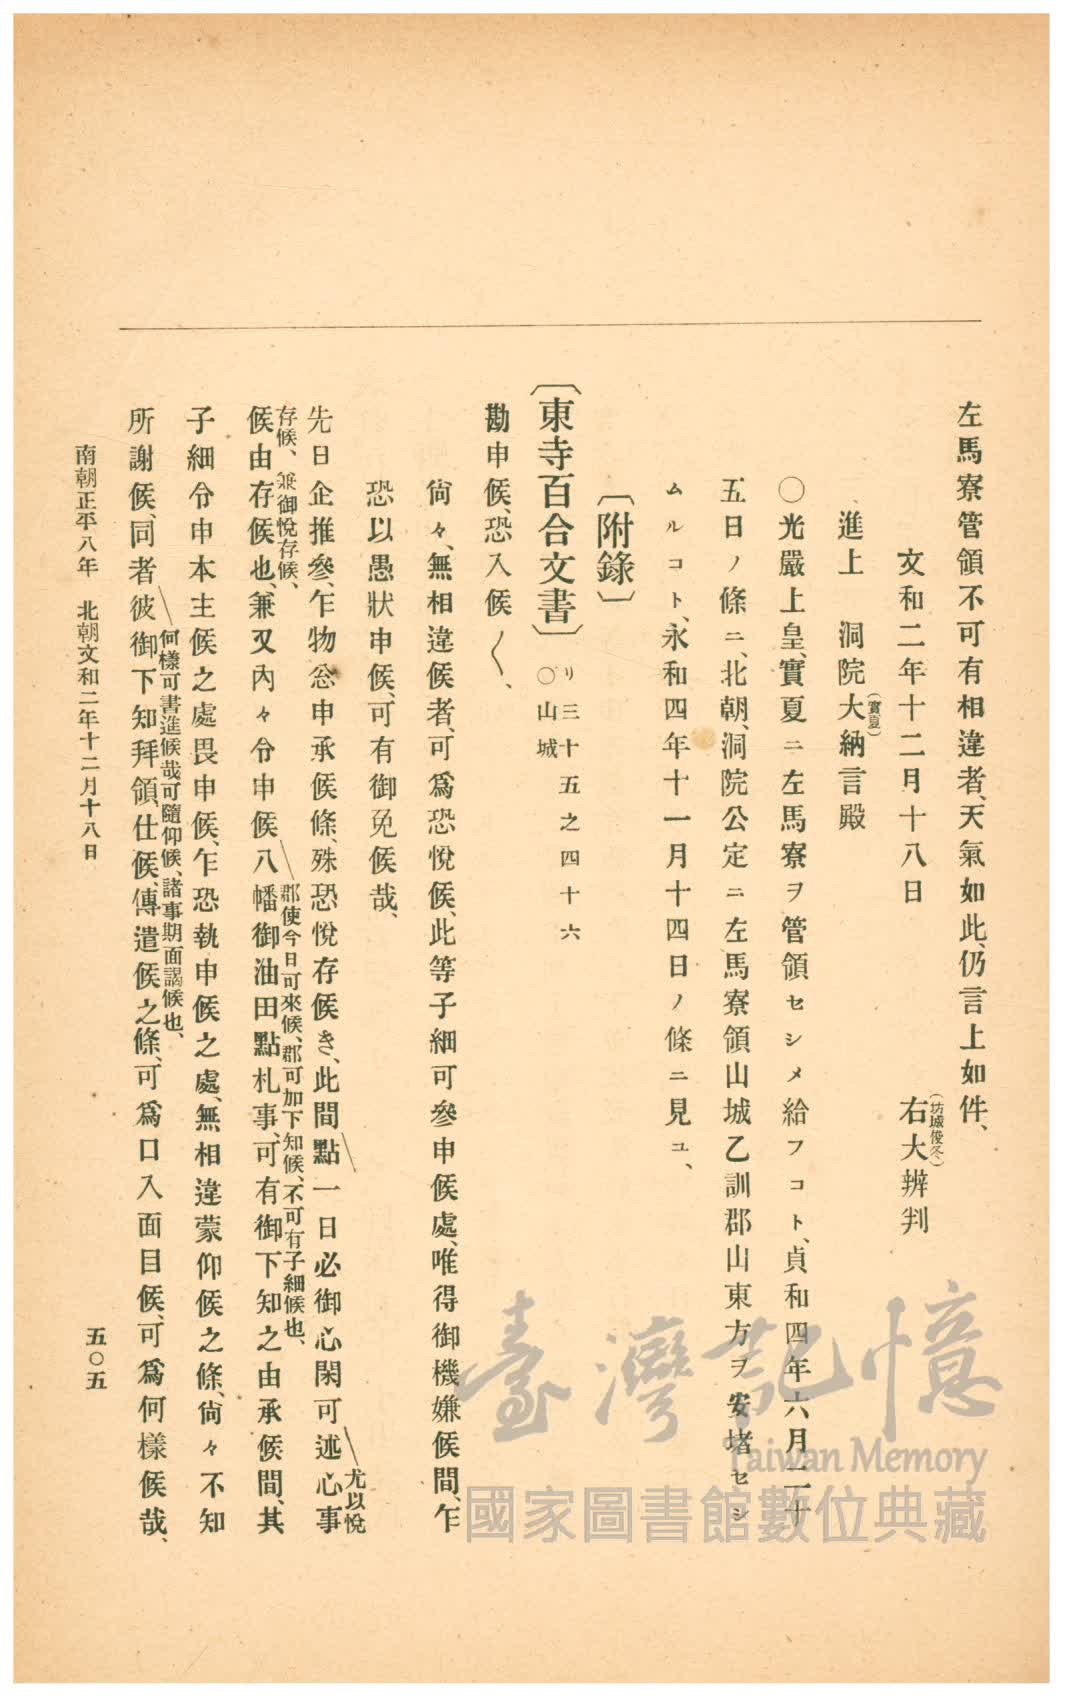 左馬寮管領不可有相違者、天氣如此、仍言上如件、
文和二年十二月十八日　右大辨判
（坊城俊冬）
進上　洞院大納言殿
（實夏）
〇光嚴上皇、實夏ニ左馬寮ヲ管領セシメ給フコト、貞和四年六月二十
五日ノ條ニ、北朝、洞院公定ニ左馬寮領山城乙訓郡山東方ヲ安堵セシ
ムルコト、永和四年十一月十四日ノ條ニ見ユ、
〔附錄〕
〔東寺百合文書〕
り三十五之四十六
〇山城
勘申候、恐入候〱、
尙々、無相違候者、可爲恐悅候、此等子細可參申候處、唯得御機嫌候間、乍
恐以愚狀申候、可有御免候哉、
尤以悅
先日企推參、乍物忩申承候條、殊恐悅存候き、此間點一日必御心閑可述心事
存候、兼御悅存候、
郡使今日可來候、郡可加下知候、不可有子細候也、
候由存候也、兼又內々令申候八幡御油田點札事、可有御下知之由承候間、其
子細令申本主候之處畏申候、乍恐執申候之處、無相違蒙仰候之條、尙々不知
何樣可書進候哉可隨仰候、諸事期面謁候也、
所謝候、同者彼御下知拜領、仕候、傳遣候之條、可爲口入面目候、可爲何樣候哉、
南朝正平八年　北朝文和二年十二月十八日
五〇五
臺灣記憶
Taiwan Memory
國家圖書館數位典藏